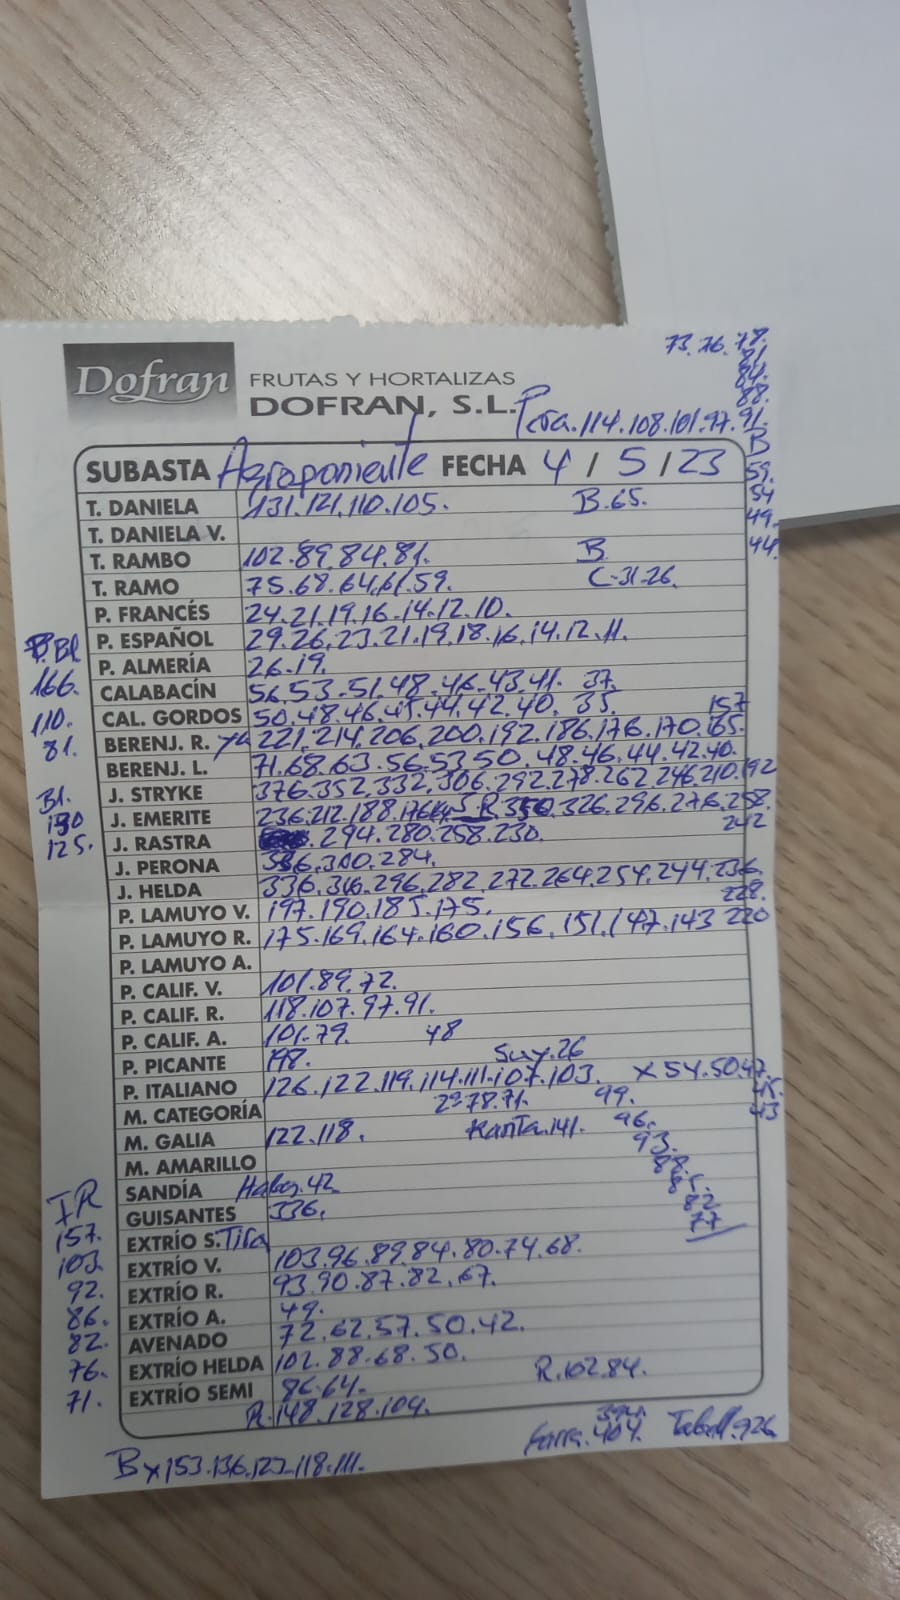 73.76.78.
81
84.
88.
Dofran
FRUTAS Y HORTALIZAS
DOFRAN, S.L.
Pera.114.108.101.97.91.
B
59.
54
49.
44.
SUBASTA Agroponiente FECHA 4/5/23
T. DANIELA 131.121.110.105. B.65.
T. DANIELA V.
T. RAMBO 102.89.84.81. B
T. RAMO 75.68.64.61.59. C-31-26.
P. FRANCÉS 24.21.19.16.14.12.10.
P. ESPAÑOL 29.26.23.21.19.18.16.14.12.11.
P. ALMERÍA 26.19.
CALABACÍN 56.53.51.48.46.43.41. 37.
CAL. GORDOS 50.48.46.45.44.42.40. 35. 157
BERENJ. R. 221.214.206.200.192.186.176.170.165.
BERENJ. L. 71.68.63.56.53.50.48.46.44.42.40.
J. STRYKE 376.352.332.306.292.278.262.246.210.192
J. EMERITE 236.212.188.176. S.R.350.326.296.276.258.
242
J. RASTRA .294.280.258.230.
J. PERONA 336.300.284.
J. HELDA 336.316.296.282.272.264.254.244.236.
228.
220
P. LAMUYO V. 197.190.185.175.
P. LAMUYO R. 175.169.164.160.156.151.147.143
P. LAMUYO A.
P. CALIF. V. 101.89.72.
P. CALIF. R. 118.107.97.91.
P. CALIF. A. 101.79. 48
P. PICANTE 198. 26
P. ITALIANO 126.122.119.114.111.107.103. x 54.50.47.
45.
43
M. CATEGORÍA 2ª78.71. 99.
M. GALIA 122.118. 141. 96.
93.
88.
85.
82
77
M. AMARILLO
SANDÍA 42
GUISANTES 336.
EXTRÍO S. Tira
EXTRÍO V. 103.96.89.84.80.74.68.
EXTRÍO R. 93.90.87.82.67.
EXTRÍO A. 49.
AVENADO 72.62.57.50.42.
EXTRÍO HELDA 102.88.68.50.
EXTRÍO SEMI 86.64. R.102.84.
R.148.128.104.
394.
404. 926
B x 153.136.123.118.111.
Bl
166.
110.
81.
Bl.
190
125.
IR
157.
103
92.
86.
82.
76.
71.